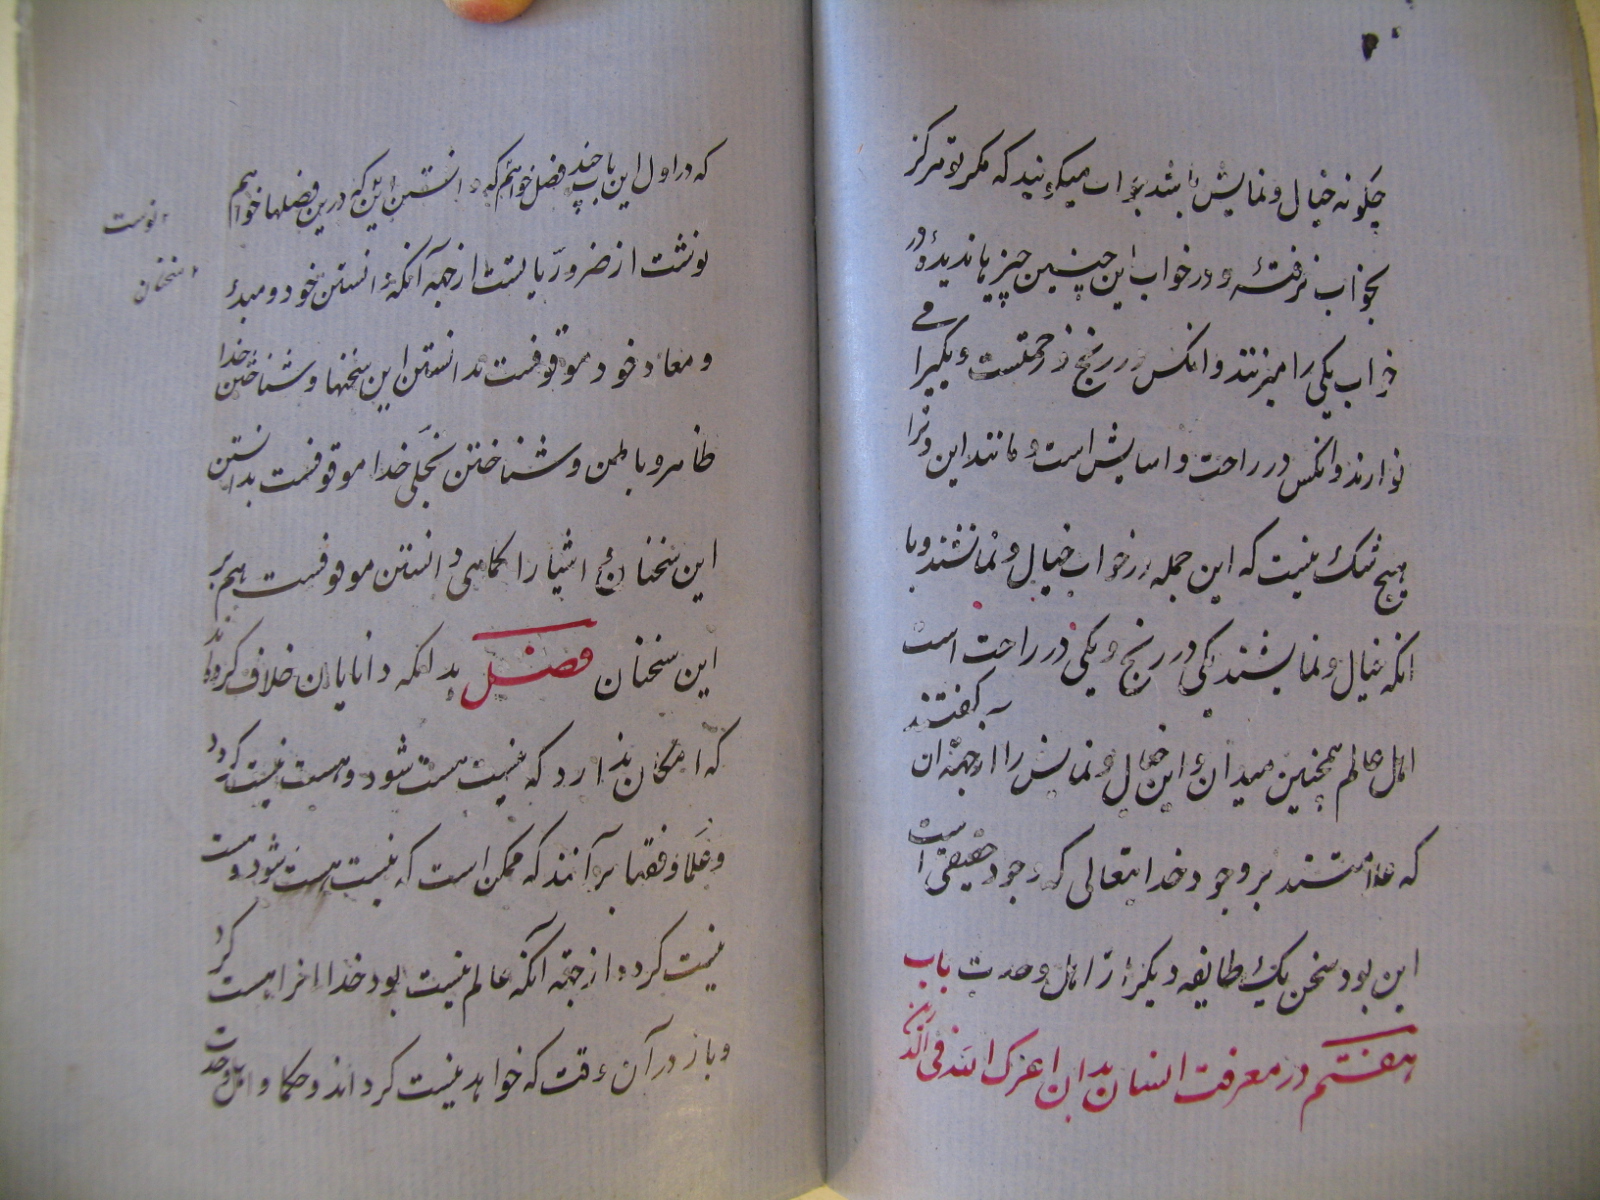 چکونه خیال و نمایش باشد جواب میکویند که مکر تو هرکز
بخواب نرفتهٔ و در خواب این چنین چیزها ندیدهٔ در
خواب یکی را میزنند و انکس در رنج و زحمتست و یکیرا می
نوازند و انکس در راحت و اسایش است و مانند این و ترا
هیچ شک نیست که این جمله در خواب خیال و نمایشند و با
انکه خیال و نمایشند یکی در رنج و یکی در راحت است
اهل عالم همچنین میدان و این خیال و نمایش را از جهة ان
به کفتند
که علامتند بر وجود خدایتعالی که وجود حقیقی است
این بود سخن یک طایفه دیکر از اهل وحدت باب
هفتم در معرفت انسان بدان اعزک الله فی الدارین
که در اول این باب چند فصل خواهم که دانستن این که درین فصلها خواهم
نوشت از ضروریاتست از جهة آنکه دانستن خود و مبدء
و معاد خود موقوفست بدانستن این سخنها و شناختن خدا
ظاهر و باطن و شناختن تجلی خدا موقوفست بدانستن
این سخنان و اشیا را کماهی دانستن موقوفست هم بر
این سخنان فصل بدانکه دانایان خلاف کرده‌اند
که امکان ندارد که نیست هست شود و هست نیست کردد
و علما و فقها بر آنند که ممکن است که نیست هست شود و هست
نیست کردد از جهة آنکه عالم نیست بود خدا انرا هست کرد
و باز در آن وقت که خواهد نیست کرداند و حکما و اهل وحدت
نوست
سخنان